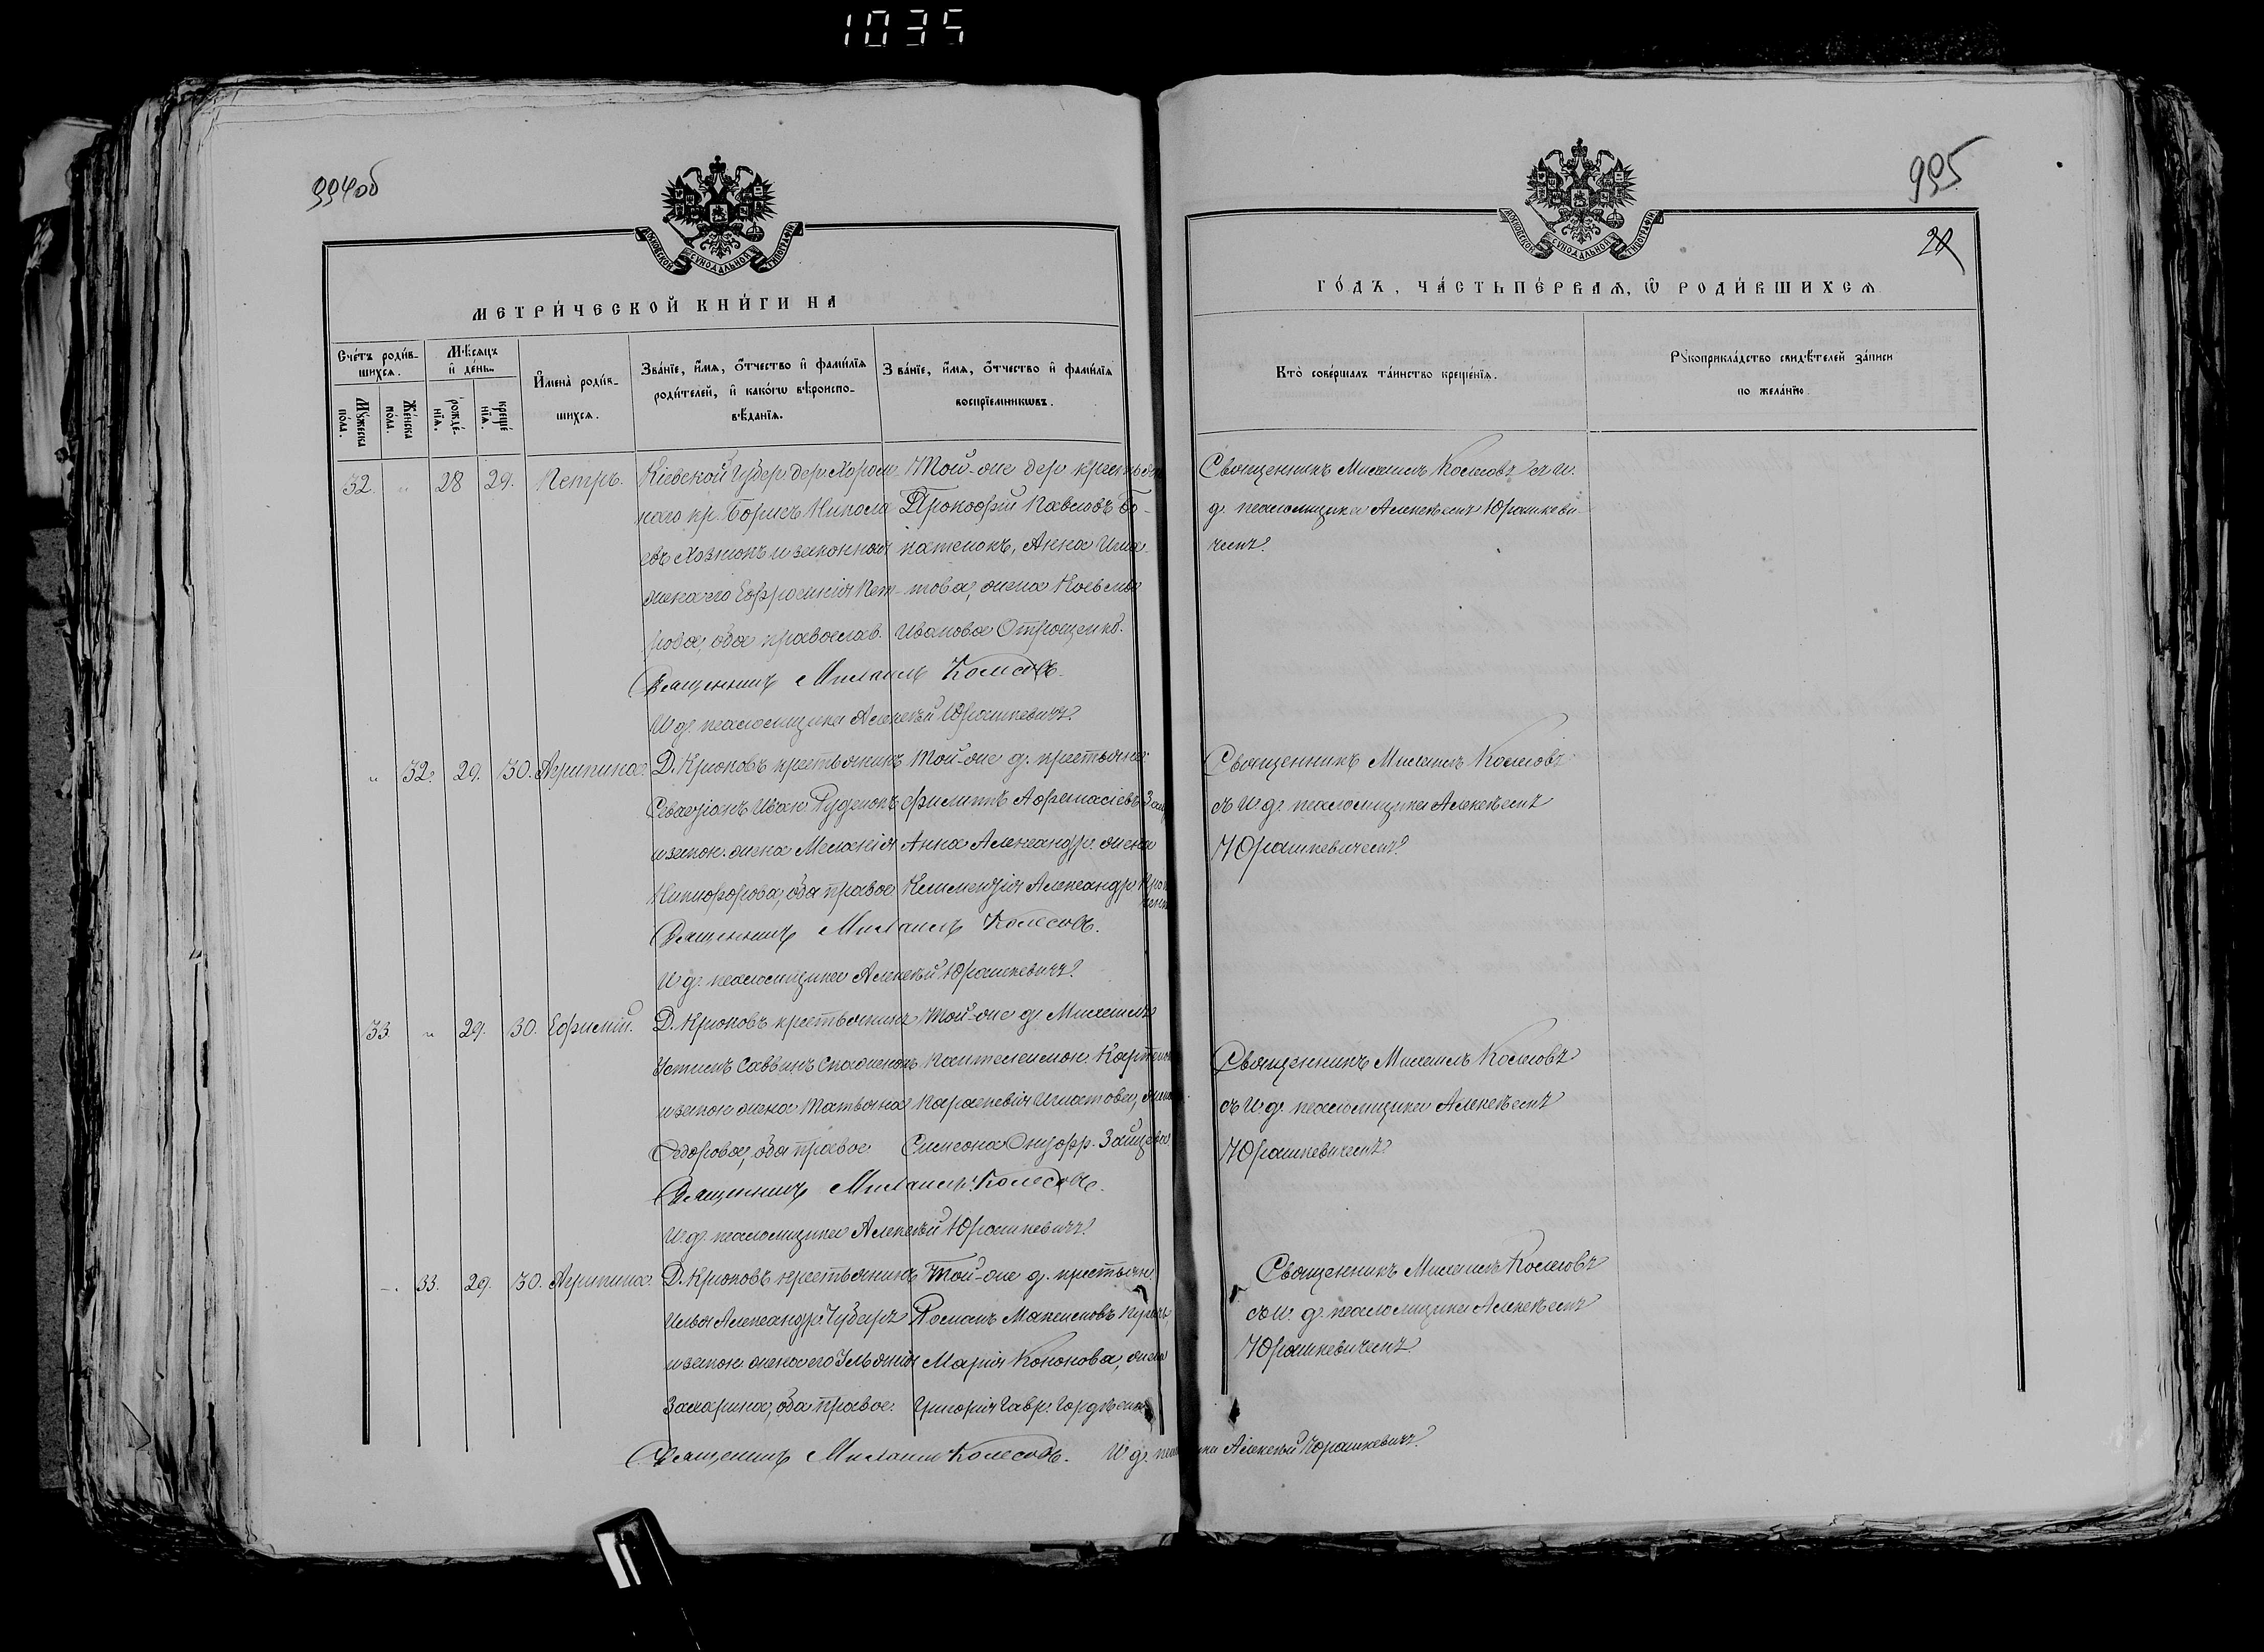 1035
994об
МОСКОВСКОЙ СУНОДАЛЬНОЙ ТИПОГРАФІИ
МЕТРИ́ЧЕСКОЙ КНИ́ГИ НА
Сче́тъ роди́в-
шихсѧ.
Мꙋ́жеска
по́ла.
Же́нска
по́ла.
Мѣ́сѧцъ
и҆ де́нь.
рожде́-
нїѧ.
креще́
нїѧ.
И҆мена̀ роди́в-
шихсѧ.
Зва́нїе, и҆́мѧ, ѻ҆́тчество и҆ фами́лїѧ
роди́телей, и҆ како́гѡ вѣроиспо-
вѣ́данїѧ.
Зва́нїе, и҆́мѧ, ѻ҆́тчество и҆ фами́лїѧ
воспрїе́мникѡвъ.
32. „ 28 29. Петръ.
Кіевской Губер. дер. Хором
наго кр. Борисъ Никола
евъ и законная
жена его Евфросинія Пет-
рова, оба православ.
Той-же дер.
Прокофій Павловъ
Анна Игна
това, жена Косьмы
Иванова Отрощенко.
Священникъ Михаилъ Колесовъ.
И. д. псаломщика Алексѣй Юрашкевичъ.
„ 32. 29. 30. Агрипина.
Д. Крюковъ крестьянинъ
Севастіанъ Иван. Руденокъ
и закон. жена Меланія
Никифорова, оба правос.
Той-же д. крестьяне
Филиппъ Афанасіевъ
Анна Александр. жена
Климентія Александр.
Священникъ Михаилъ Колесовъ.
И. д. псаломщика Алексѣй Юрашкевичъ.
33 „ 29. 30. Ефимій.
Д. Крюковъ крестьянинъ
Устинъ Саввинъ
и закон. жена Татьяна
Федорова, оба правос.
Той-же д. Михаилъ
Пантелеимон.
Параскевія Игнатова, жена
Симеона Онуфр. Зайцева
Священникъ Михаилъ Колесовъ.
И. д. псаломщика Алексѣй Юрашкевичъ.
„ 33. 29. 30. Агрипина.
Д. Крюковъ крестьянинъ
Илья Александр. Губаръ
и закон. жена его Ульянія
Захарина, оба правос.
Той-же д. крестьяне
Романъ Максимовъ
Марія Кононова, жена
Григорія Гавр.
Священникъ Михаилъ Колесовъ. И. д. Алексѣй Юрашкевичъ.
995
МОСКОВСКОЙ СУНОДАЛЬНОЙ ТИПОГРАФІИ
ГО́ДЪ, ЧА́СТЬ ПЕ́РВАѦ, Ѡ҆ РОДИ́ВШИХСѦ
Кто̀ соверша́лъ та́инство креще́нїѧ.
Рꙋкоприкла́дство свидѣ́телей за́писи
по жела́нїю.
Священникъ Михаилъ Колесовъ съ и.
д. псаломщика Алексѣемъ Юрашкеви-
чемъ.
Священникъ Михаилъ Колесовъ
съ И. д. псаломщика Алексѣемъ
Юрашкевичемъ.
Священникъ Михаилъ Колесовъ
съ И. д. псаломщика Алексѣемъ
Юрашкевичемъ.
Священникъ Михаилъ Колесовъ
съ И. д. псаломщика Алексѣемъ
Юрашкевичемъ.